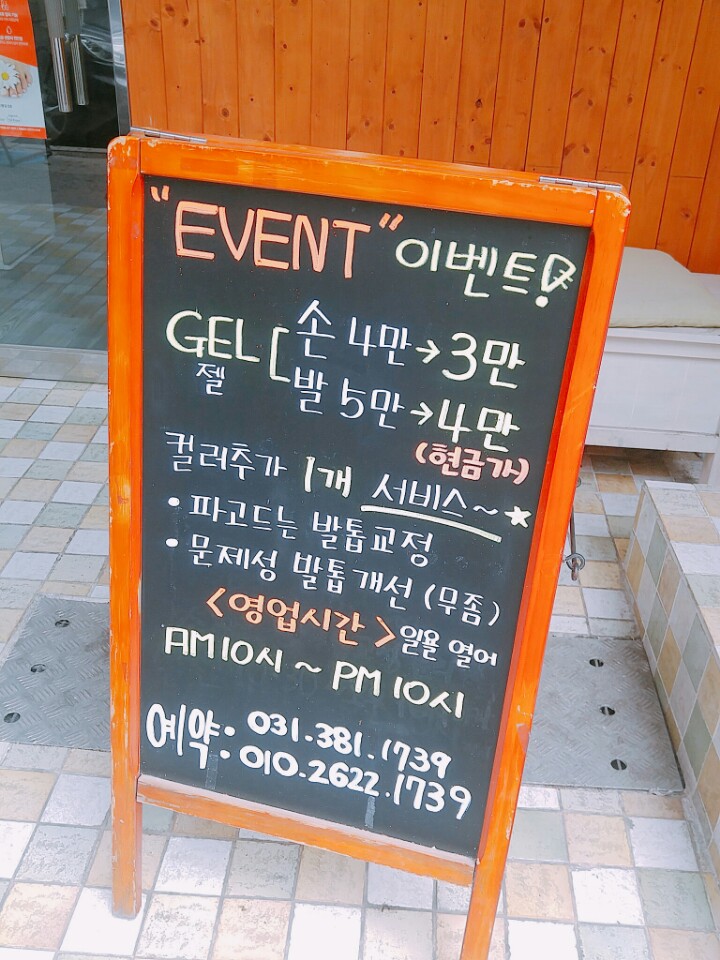 "EVENT" 이벤트!
GEL [ 손 4만→3만
젤 발 5만→4만
(현금가)
컬러추가 1개 서비스~★
• 파고드는 발톱교정
• 문제성 발톱개선 (무좀)
<영업시간> 일욜 열어
AM 10시 ~ PM 10시
예약: 031.381.1739
010.2622.1739